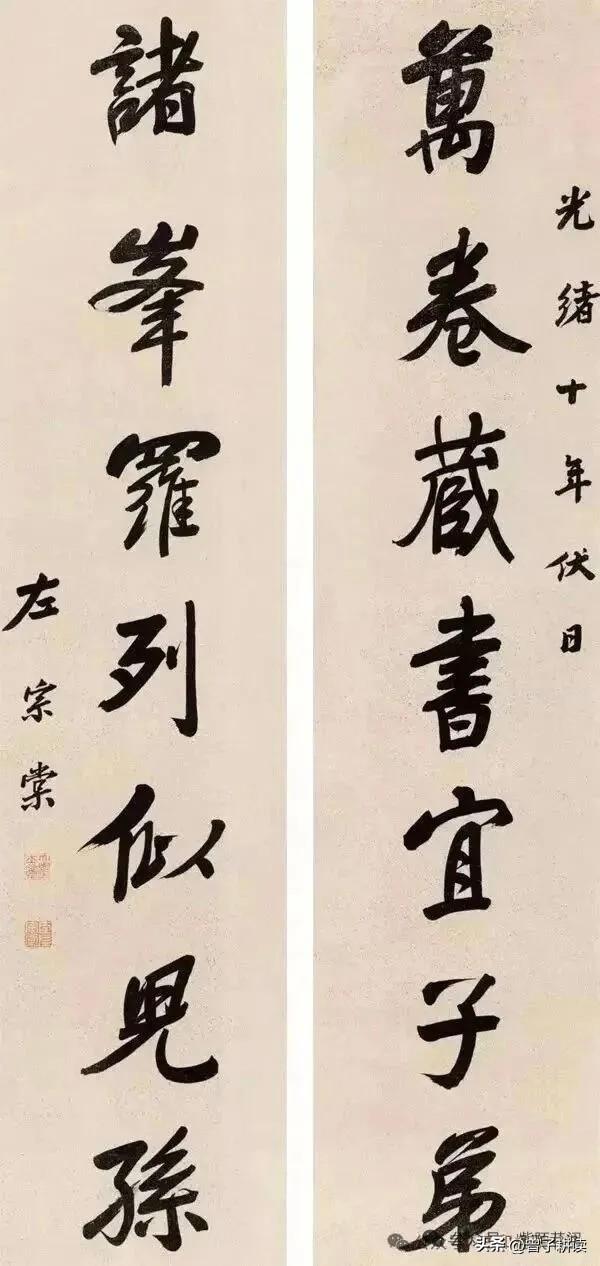 光緒十年伏日
萬卷藏書宜子弟
諸峯羅列似兒孫
左宗棠
头条@曾子讲读